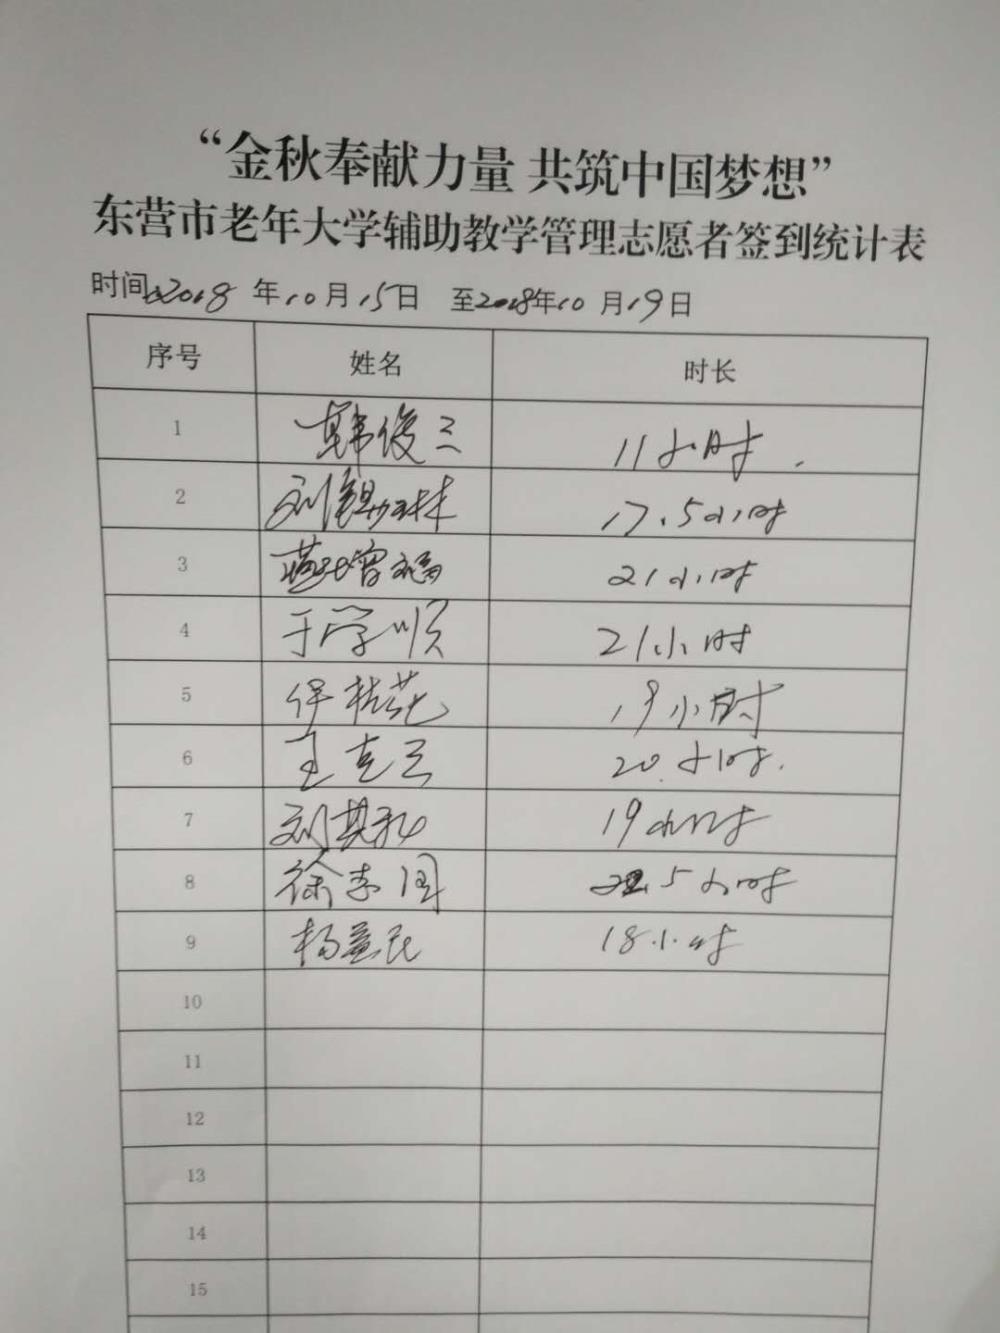 “金秋奉献力量 共筑中国梦想”
东营市老年大学辅助教学管理志愿者签到统计表
时间 2018 年 10 月 15 日 至 2018 年 10 月 19 日
序号 姓名 时长
1 韩俊三 11小时
2 刘锡林 17.5小时
3 燕增福 21小时
4 于学顺 21小时
5 伊桂花 19小时
6 王克云 20小时
7 刘其和 19小时
8 徐李国 .5小时
9 杨益民 18小时
10
11
12
13
14
15